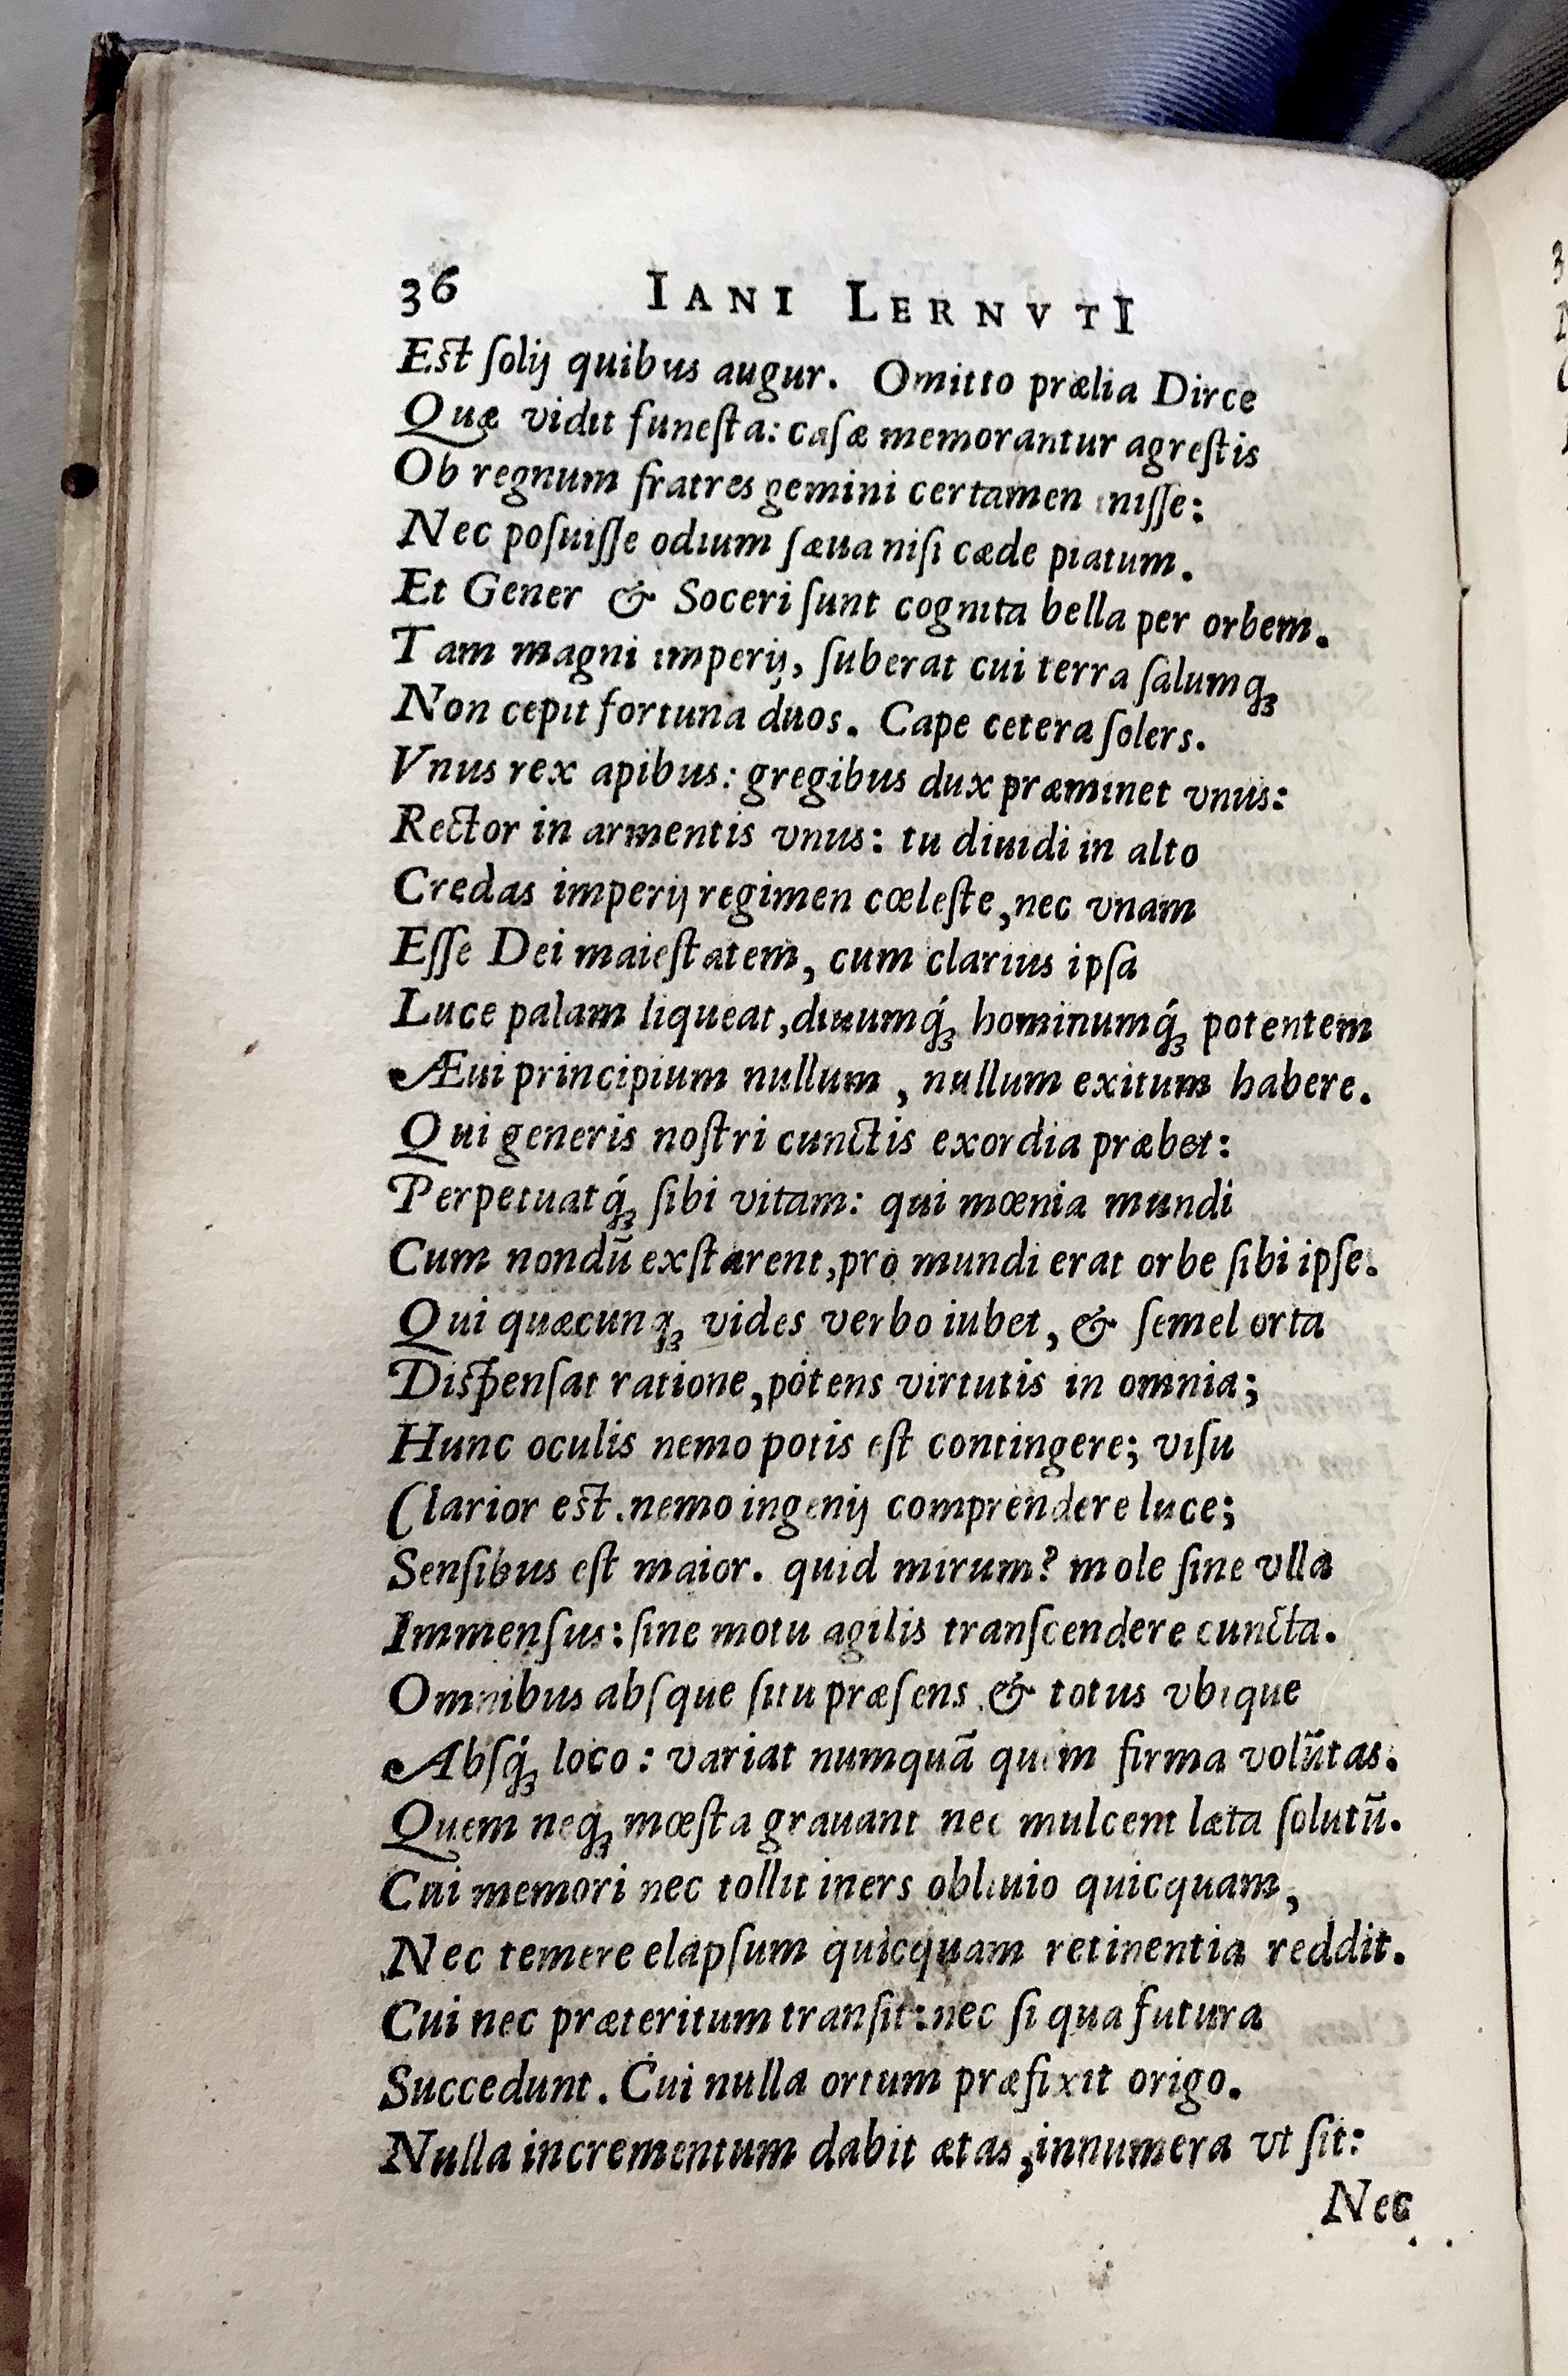 36 IANI LERNVTI
Eſt ſolij quibus augur. Omitto prælia Dirce
Quæ vidit funeſta: caſæ memorantur agreſtis
Ob regnum fratres gemini certamen iniſſe:
Nec poſuiſſe odium ſæua niſi cæde piatum.
Et Gener & Soceri ſunt cognita bella per orbem.
Tam magni imperij, ſuberat cui terra ſalumq́ꝫ
Non cepit fortuna duos. Cape cetera ſolers.
Vnus rex apibus: gregibus dux præminet vnus:
Rector in armentis vnus: tu diuidi in alto
Credas imperij regimen cœleſte, nec vnam
Eſſe Dei maieſtatem, cum clarius ipſa
Luce palam liqueat, diuumq́ꝫ hominumq́ꝫ potentem
Æui principium nullum, nullum exitum habere.
Qui generis noſtri cunctis exordia præbet:
Perpetuatq́ꝫ ſibi vitam: qui mœnia mundi
Cum nondū exſtarent, pro mundi erat orbe ſibi ipſe.
Qui quæcunqꝫ vides verbo iubet, & ſemel orta
Diſpenſat ratione, potens virtutis in omnia;
Hunc oculis nemo potis eſt contingere; viſu
Clarior eſt. nemo ingenij comprendere luce;
Senſibus eſt maior. quid mirum? mole ſine vlla
Immenſus: ſine motu agilis tranſcendere cuncta.
Omnibus abſque ſitu præſens & totus vbique
Abſq́ꝫ loco: variat numquā quem firma volūtas.
Quem neqꝫ mœſta grauant nec mulcent læta ſolutū.
Cui memori nec tollit iners obliuio quicquam,
Nec temere elapſum quicquam retinentia reddit.
Cui nec præteritum tranſit: nec ſi qua futura
Succedunt. Cui nulla ortum præfixit origo.
Nulla incrementum dabit ætas, innumera vt ſit:
Nec